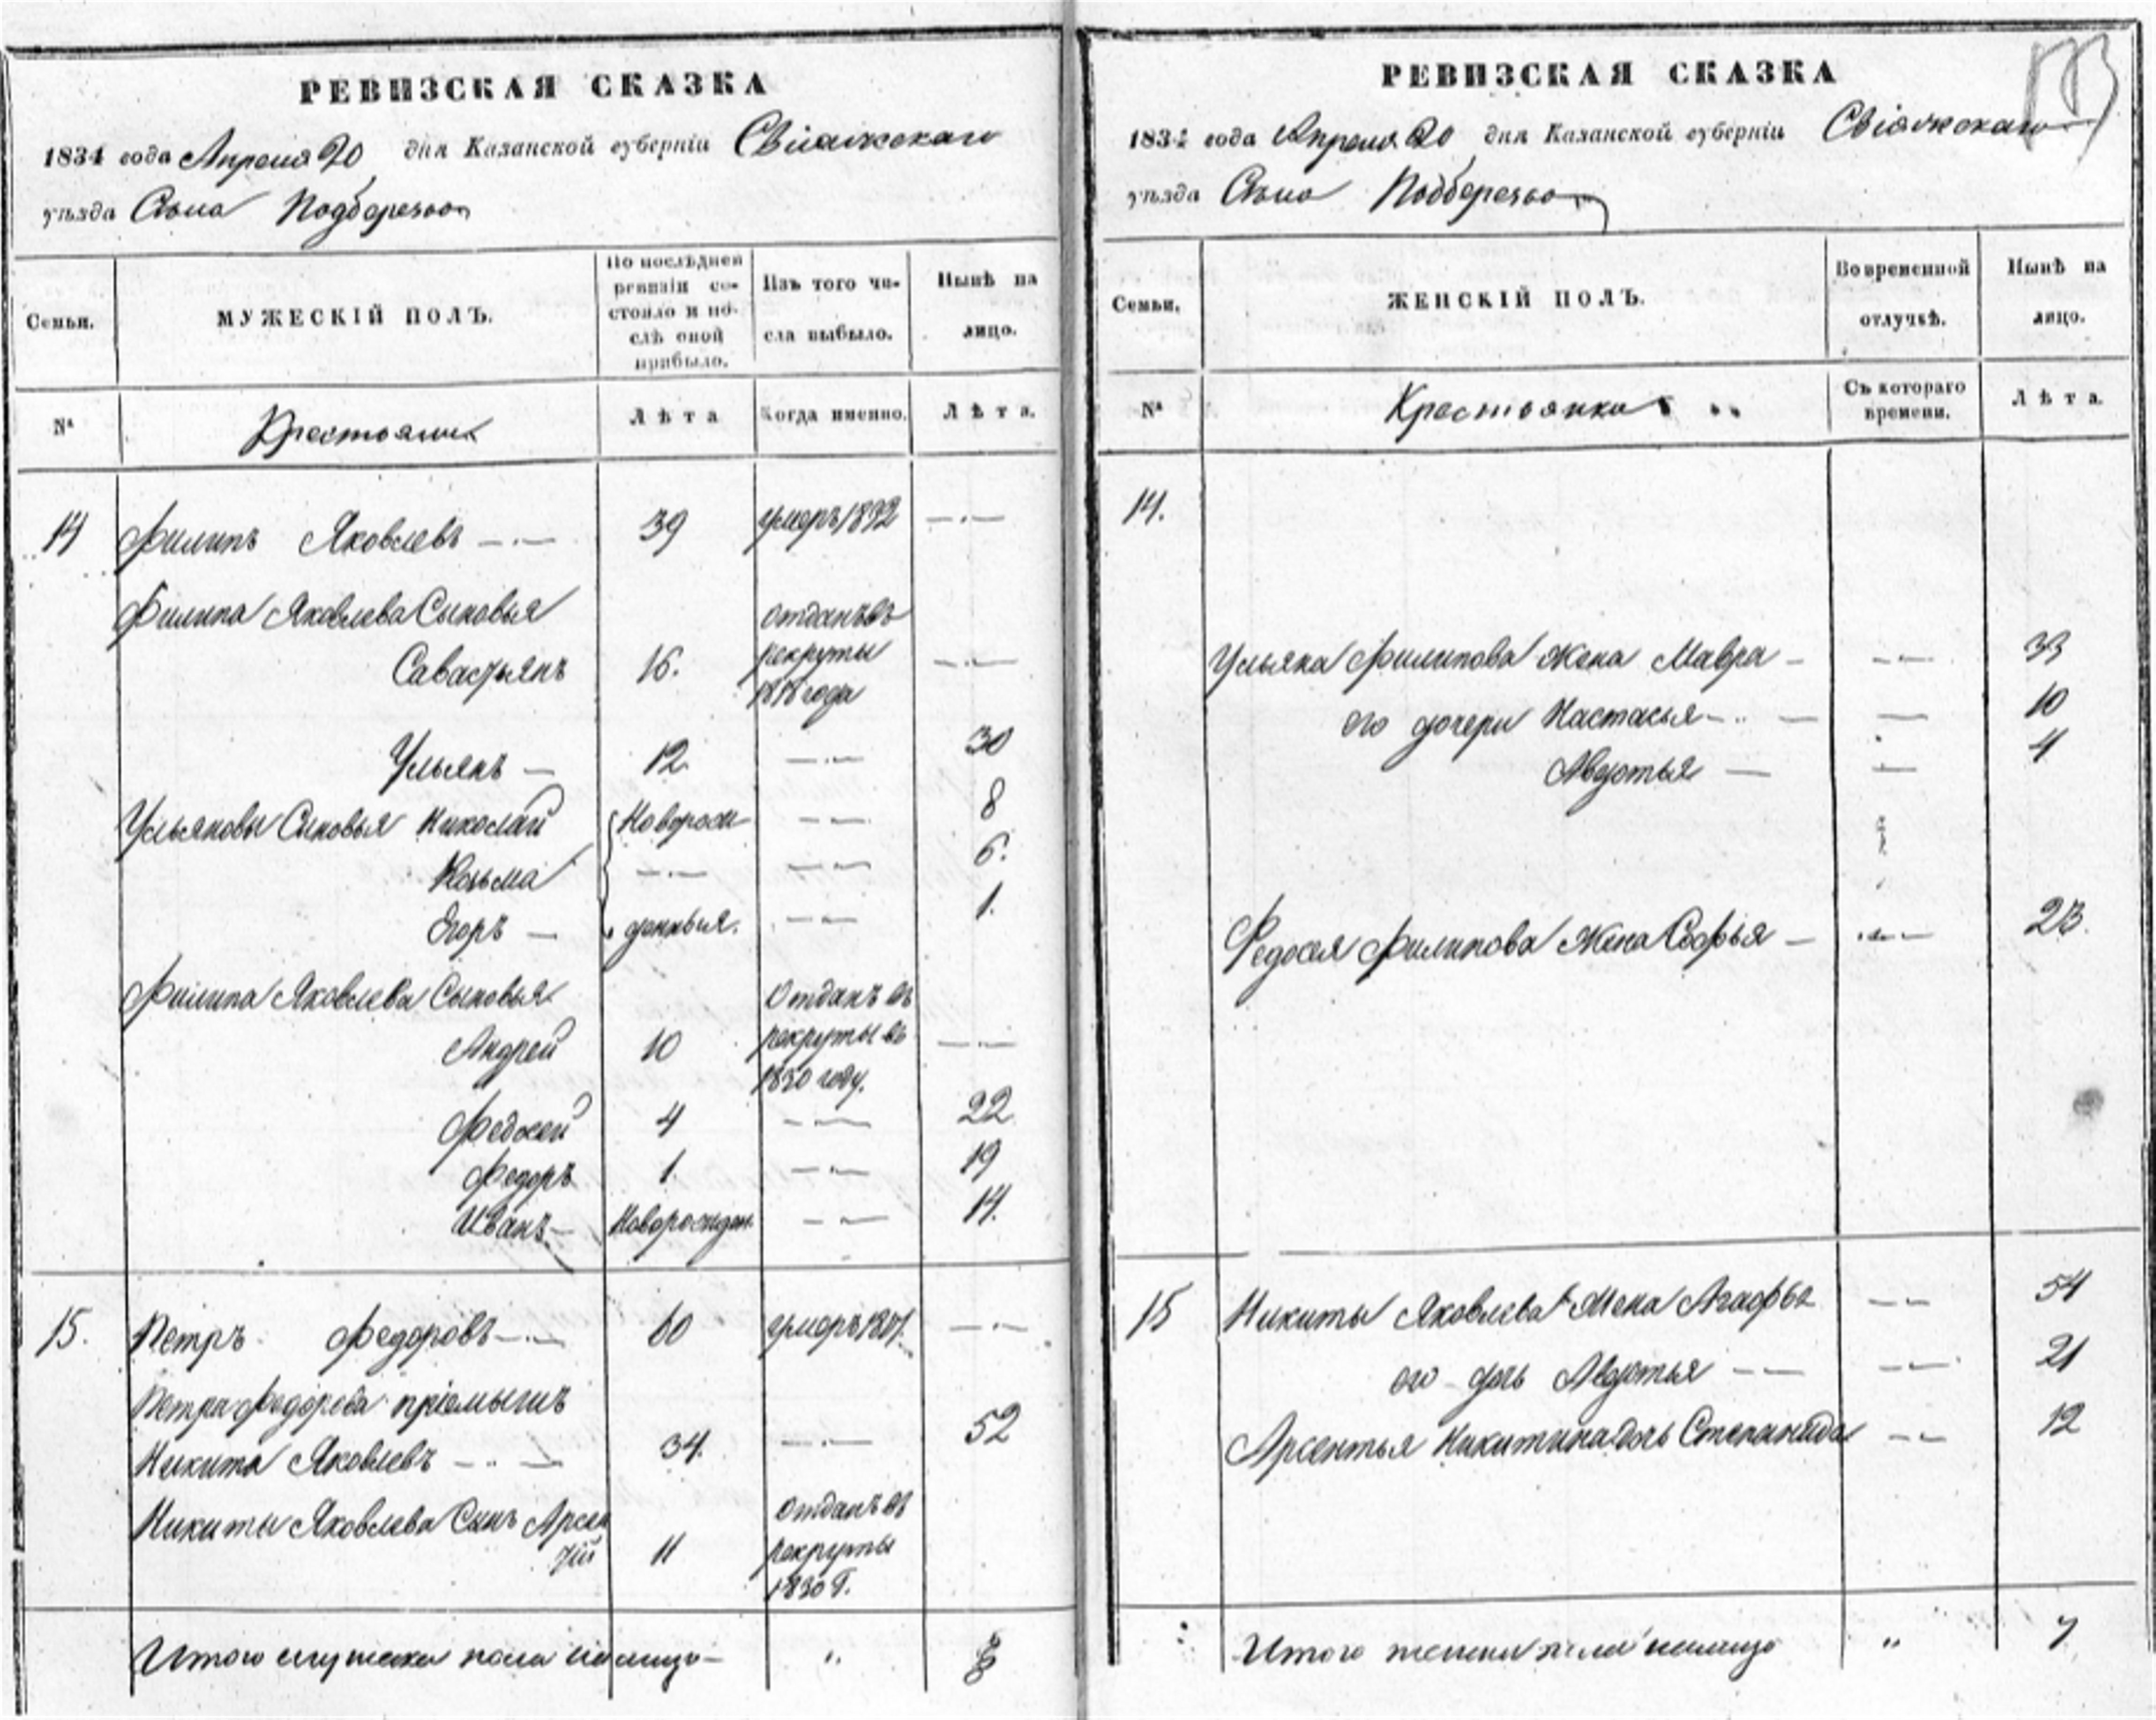 РЕВИЗСКАЯ СКАЗКА
1834 года Апреля 20 дня Казанской губерніи Свіяжскаго
уѣзда Села Подберезья
Семьи.
МУЖЕСКІЙ ПОЛЪ.
По послѣдней ревизіи состояло и послѣ оной прибыло.
Изъ того числа выбыло.
Нынѣ на лицо.
№
Крестьяне
Лѣта
Когда именно.
Лѣта.
14 Филипъ Яковлевъ 39 умеръ 1832
Филипа Яковлева Сыновья
Савастьянъ 16. отданъ въ рекруты года
Ульянъ 12 30
Ульяновы Сыновья Николай Новорож 8
Козьма 6.
Егоръ денныя. 1.
Филипа Яковлева Сыновья
Андрей 10 Отданъ въ рекруты въ 1830 году.
Федосей 4 22
Федоръ 1 19
Иванъ Новорожден. 14.
15. Петръ Федоровъ 60 умеръ
Петра Федорова пріемышъ
Никита Яковлевъ 34. 52
Никиты Яковлева Сынъ Арсен
тій 11 Отданъ въ рекруты 1830 г.
Итого мужеска пола на лицо 8
РЕВИЗСКАЯ СКАЗКА
1834 года Апреля 20 дня Казанской губерніи Свіяжскаго
уѣзда Села Подберезья
Семьи.
ЖЕНСКІЙ ПОЛЪ.
Во временной отлучкѣ.
Нынѣ на лицо.
№
Крестьянки
Съ котораго времени.
Лѣта.
14.
Ульяна Филипова Жена Мавра 33
его дочери Настасья 10
Авдотья 4
Федосея Филипова Жена Софья 23.
15 Никиты Яковлева Жена Агафья 54
его дочь Авдотья 21
Арсентья Никитина дочь Степанида 12
Итого женска пола налицо " 7